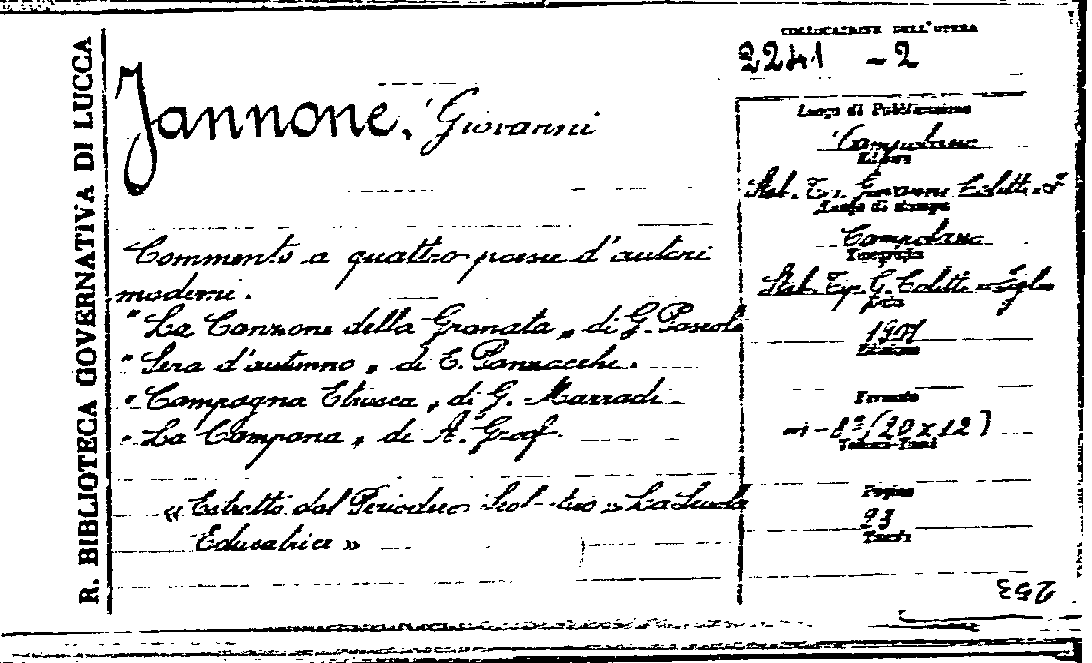 R. BIBLIOTECA GOVERNATIVA DI LUCCA
COLLOCAZIONE DELL'OPERA
2241 - 2
Jannone, Giovanni
Commento a quattro poesie d'autori
moderni.
"La Canzone della Granata" di G. Pascoli
"Sera d'autunno" di E. Panzacchi.
"Campagna Etrusca" di G. Marradi
"La Campana" di A. Graf.
« Estratto dal Periodico La Scuola
Educatrice »
Luogo di Pubblicazione
Campobasso
Editore
Stab. Tip. Giovanni Colitti e F.º
Luogo di stampa
Campobasso
Tipografia
Stab. Tip. G. Colitti e Figlio
Data
Edizione
Formato
8º (20x12)
Volumi-Tomi
Pagine
93
Tavole
253